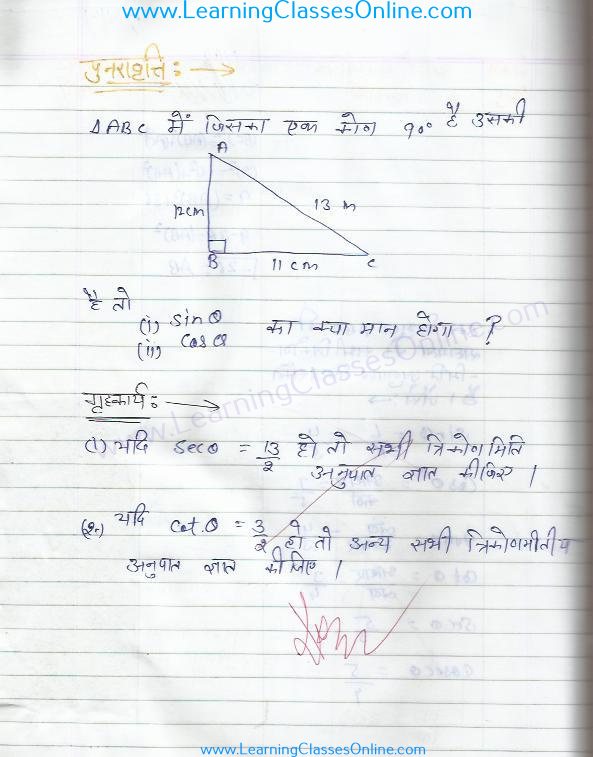 www.LearningClassesOnline.com
पुनरावृत्ति :→
ΔABC में जिसका एक कोण 90° है उसकी
A
12cm
13 m
B
11 cm
C
है तो
(i) sinθ
(ii) cosθ
का क्या मान होगा ?
www.LearningClassesOnline.com
गृहकार्य :→
(1) यदि secθ = 13/2 हो तो सभी त्रिकोणमिति
अनुपात ज्ञात कीजिए ।
(2.) यदि cot.θ = 3/2 हो तो अन्य सभी त्रिकोणमीतीय
अनुपात ज्ञात कीजिए ।
www.LearningClassesOnline.com